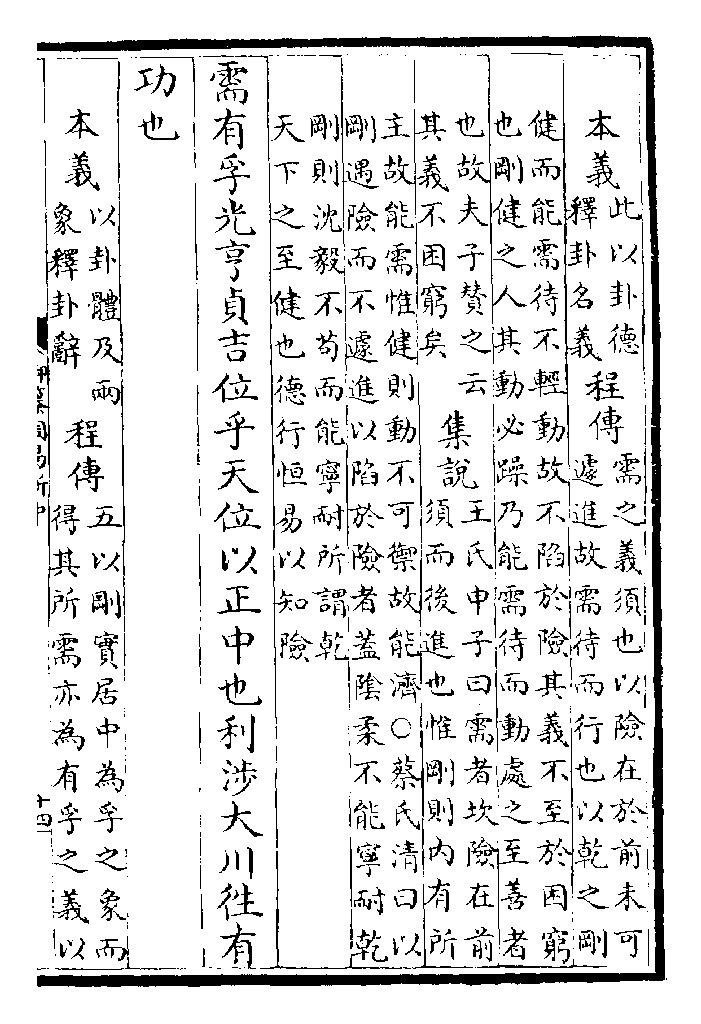 本義
此以卦德
釋卦名義
程傳
需之義須也以險在於前未可
遽進故需待而行也以乾之剛
健而能需待不輕動故不陷於險其義不至於困窮
也剛健之人其動必躁乃能需待而動處之至善者
也故夫子賛之云
其義不困窮矣
集說
王氏申子曰需者坎險在前
須而後進也惟剛則內有所
主故能需惟健則動不可禦故能濟○蔡氏清曰以
剛遇險而不遽進以陷於險者蓋陰柔不能寧耐乾
剛則沈毅不苟而能寧耐所謂乾
天下之至健也德行恒易以知險
需有孚光亨貞吉位乎天位以正中也利涉大川徃有
功也
本義
以卦體及兩
象釋卦辭
程傳
五以剛實居中為孚之象而
得其所需亦為有孚之義以
十四